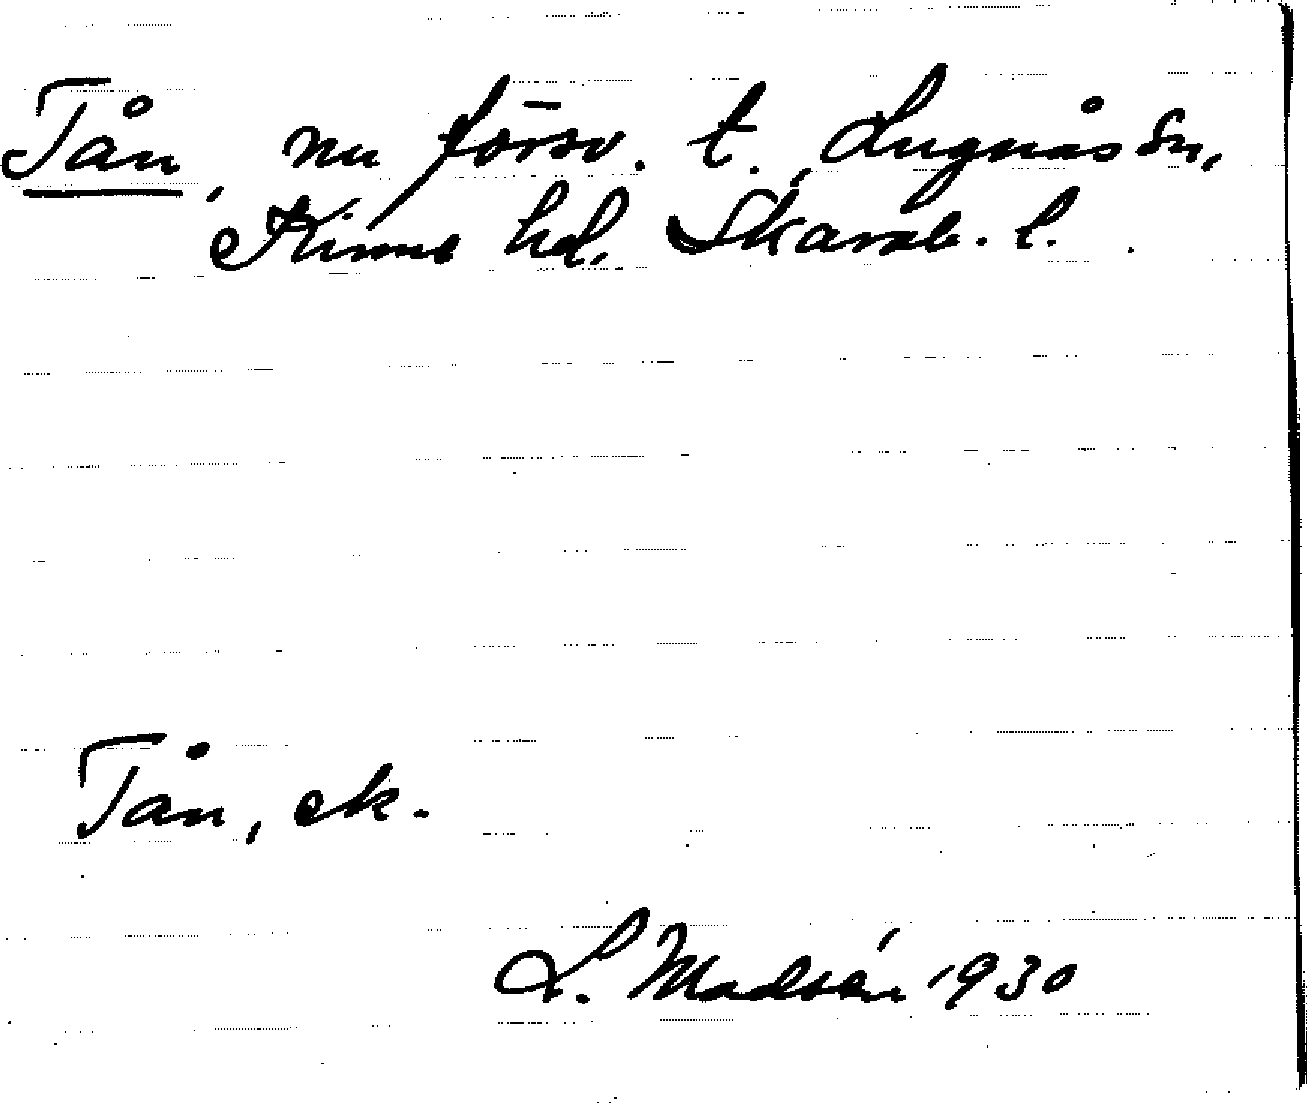 Tån, nu försv. t. Lugnås sn,
Kinne hd. Skarab. l.
Tån, ek.
L. Madsén 1930